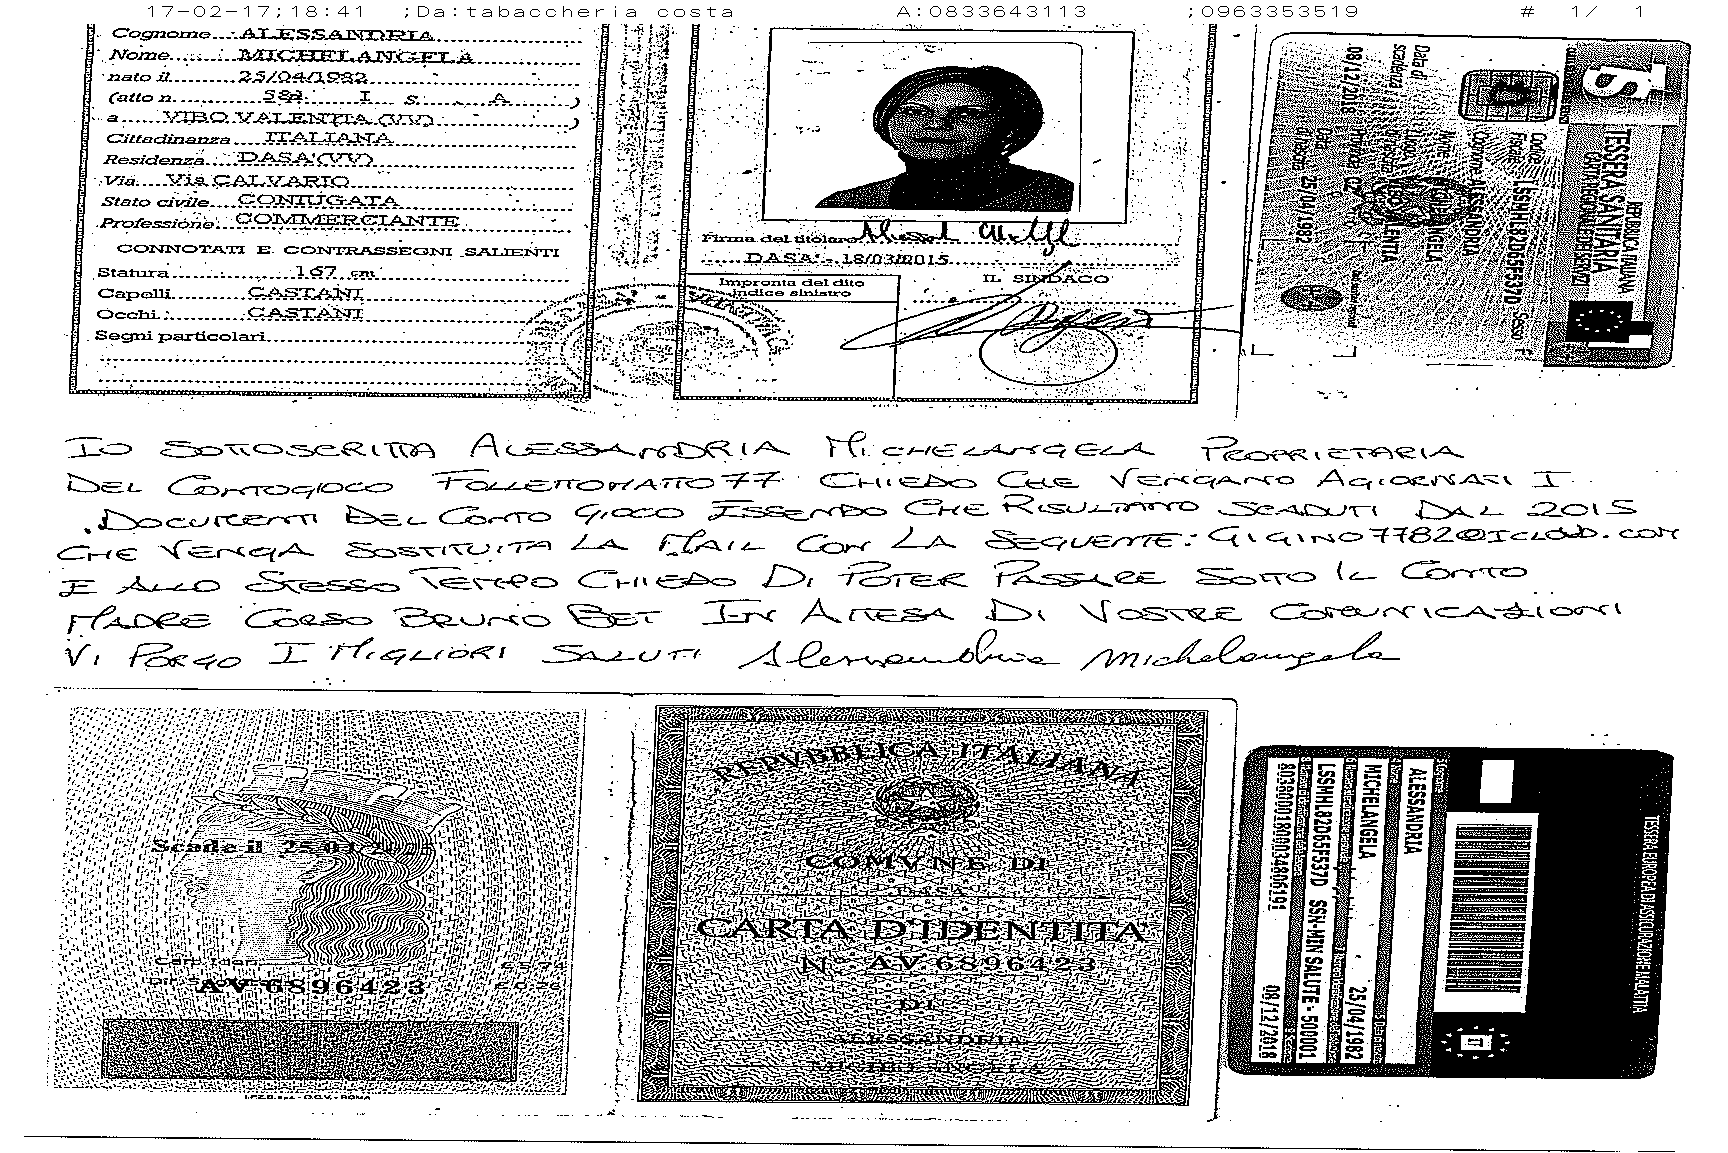 17-02-17;18:41 ;Da:tabaccheria costa A:0833643113 ;0963353519 # 1/ 1
Cognome ALESSANDRIA
Nome MICHELANGELA
nato il 25/04/1982
(atto n. I S. A )
a VIBO VALENTIA (VV) )
Cittadinanza ITALIANA
Residenza DASA'(VV)
Via Via CALVARIO
Stato civile CONIUGATA
Professione COMMERCIANTE
CONNOTATI E CONTRASSEGNI SALIENTI
Statura 167 cm
Capelli CASTANI
Occhi CASTANI
Segni particolari
Firma del titolare
DASA' - 18/03/2015
Impronta del dito
indice sinistro
IL SINDACO
TS
REPUBBLICA ITALIANA
TESSERA SANITARIA
CARTA REGIONALE DEI SERVIZI
Codice Fiscale LSSMHL82D65F537D Sesso F
Cognome ALESSANDRIA
Nome MICHELANGELA
VIBO VALENTIA
Data di nascita 25/04/1982
Data di scadenza 08/12/2018
IO SOTTOSCRITTA ALESSANDRIA MICHELANGELA PROPRIETARIA
DEL CONTOGIOCO FOLLETTOMATTO77 CHIEDO CHE VENGANO AGIORNATI I
DOCUMENTI DEL CONTO GIOCO ESSENDO CHE RISULTANO SCADUTI DAL 2015
CHE VENGA SOSTITUITA LA MAIL CON LA SEGUENTE: GIGINO7782@ICLOUD.COM
E ALLO STESSO TEMPO CHIEDO DI POTER PASSARE SOTTO IL CONTO
MADRE CORSO BRUNO BET IN ATTESA DI VOSTRE COMUNICAZIONI
VI PORGO I MIGLIORI SALUTI Alessandria Michelangela
Scade il
AV 6896423
I.P.Z.S. S.p.A. - O.C.V. - ROMA
REPVBBLICA ITALIANA
COMVNE DI
DASA'
CARTA D'IDENTITA'
N° AV 6896423
DI
ALESSANDRIA
MICHELANGELA
TESSERA EUROPEA DI ASSICURAZIONE MALATTIA
ALESSANDRIA
MICHELANGELA 25/04/1982
LSSMHL82D65F537D SSN-MIN SALUTE - 500001
80380001800342406191 08/12/2018